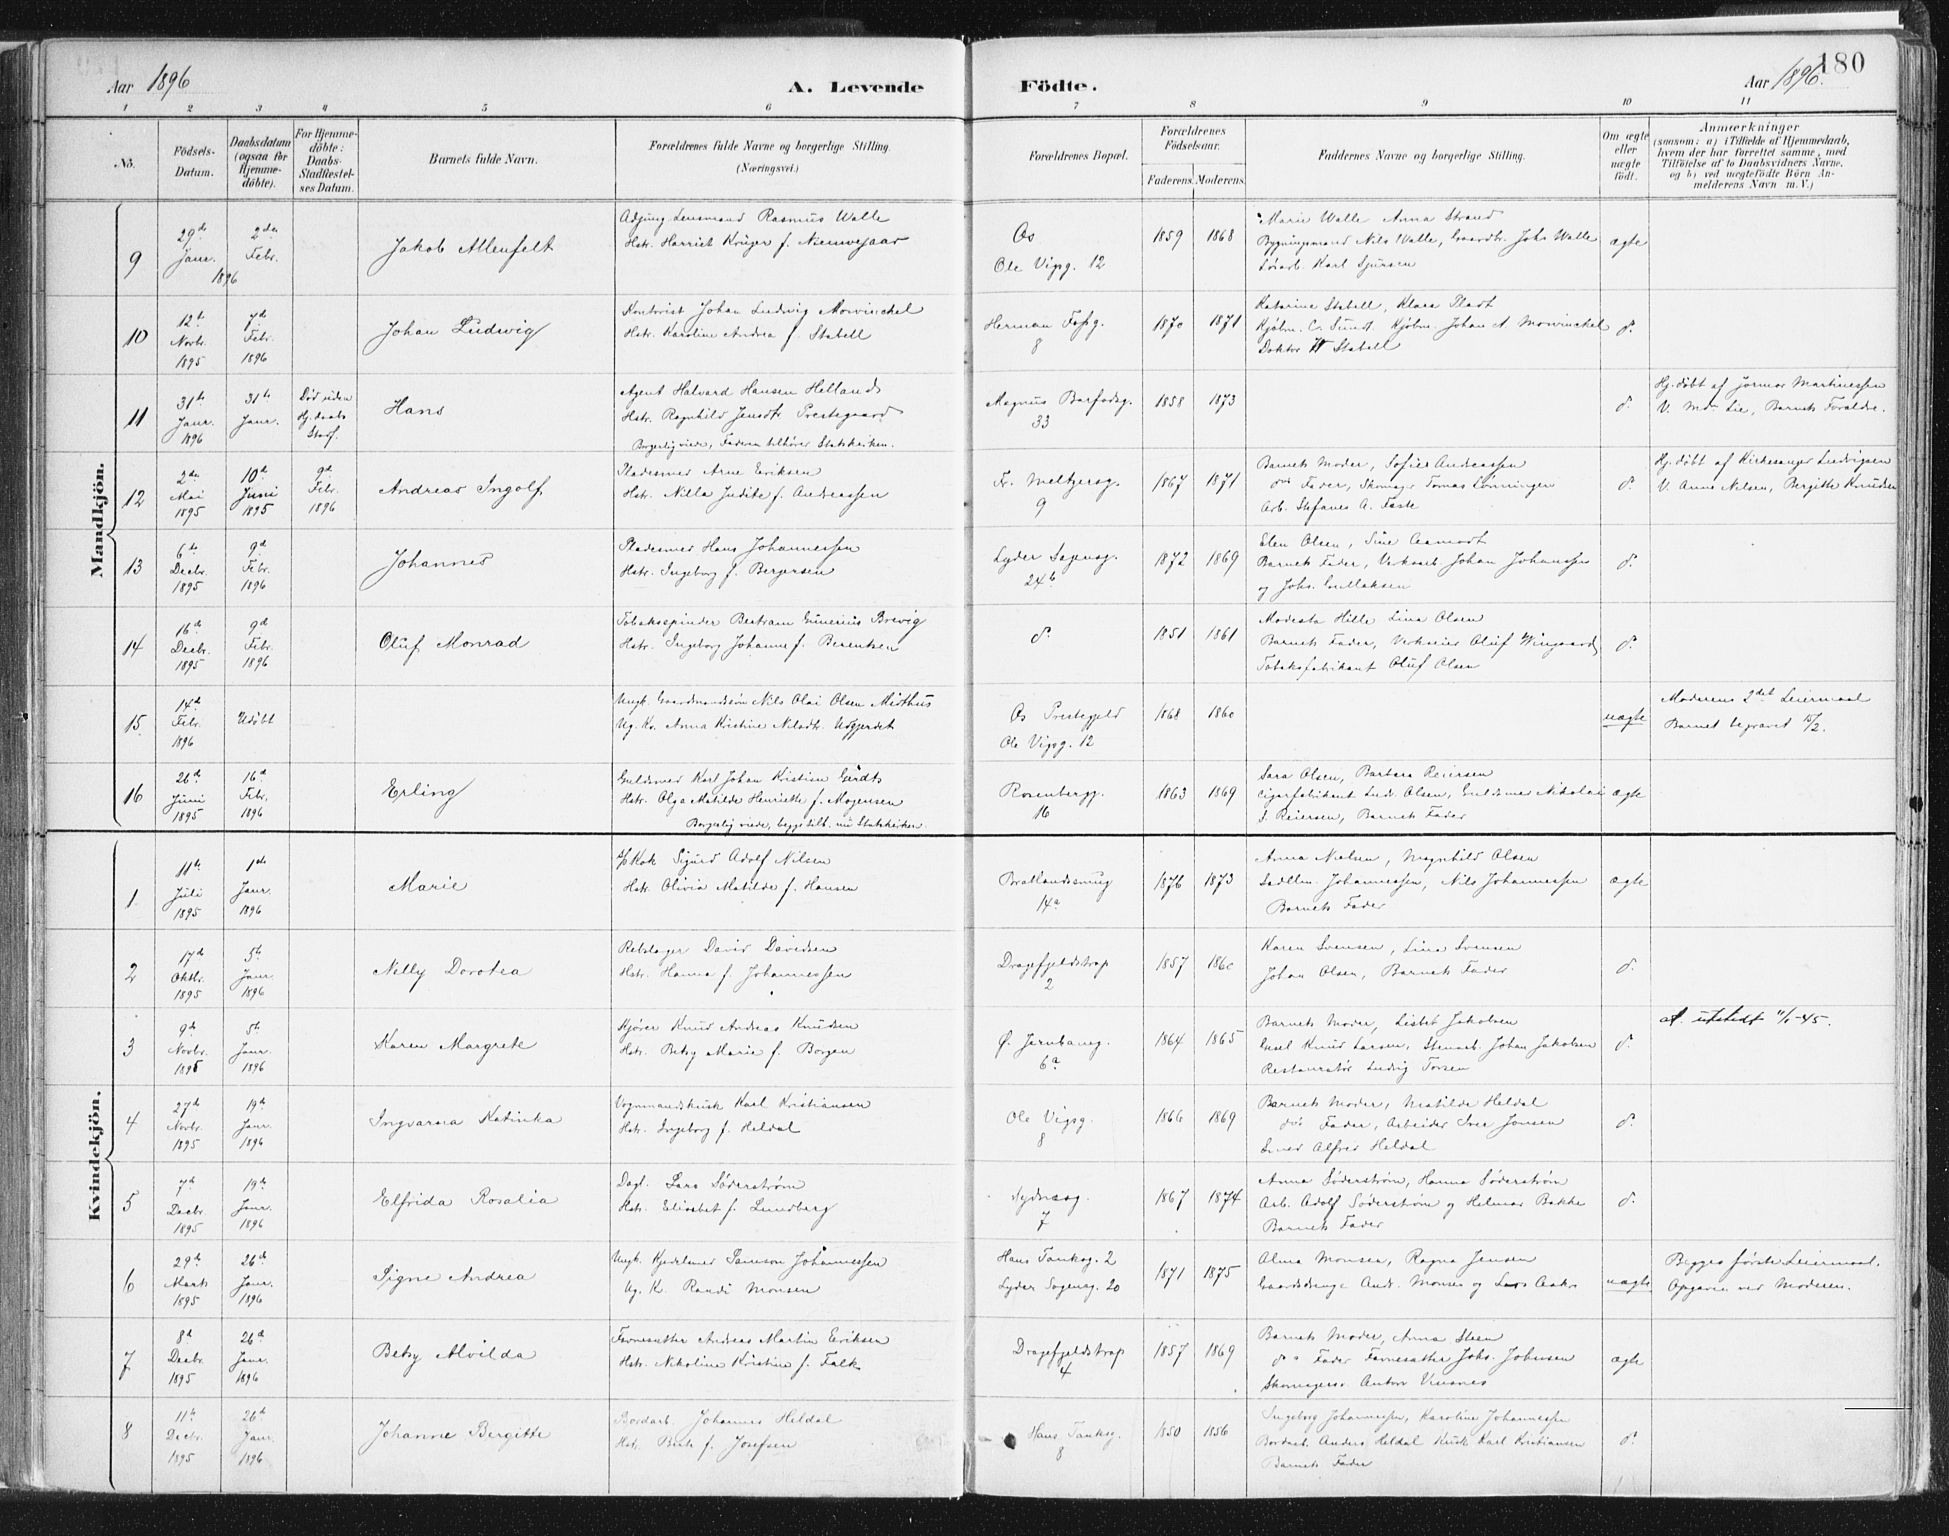 180
Aar 1896
A. Levende Födte.
Aar 1896.
1 2 3 4 5 6 7 8 9 10 11
No.
Födsels-Datum.
Daabsdatum (ogsaa for Hjemme-döbte).
For Hjemme-döbte: Daabs-Stadfæstel-ses Datum.
Barnets fulde Navn.
Forældrenes fulde Navne og borgerlige Stilling. (Næringsvei.)
Forældrenes Bopæl.
Forældrenes Födselsaar.
Faderens. Moderens.
Faddernes Navne og borgerlige Stilling.
Om ægte eller uægte födt.
Anmærkninger
(saasom: a) i Tilfælde af Hjemmedaab, hvem der har forrettet samme, med Tilföielse af to Daabsvidners Navne, og b) ved uægtefödte Börn An-melderens Navn m. V.)
Mandkjön.
9 29de Janr. 1896 2den Febr. Jakob Allenfelt
Adjung. Lensmand Rasmus Walle
Hstr. Harriet Krüger f. Niemvejaar
Os
Ole Vigsg. 12
1859 1868
Marie Walle Anna Strand
Bygningsmand Nils Walle, Gaardbr. Johs Walle
Karl Sjursen
ægte
10 12te Novbr. 1895 7d Febr. 1896 Johan Ludwig
Kontorist Johan Ludwig Mowinckel
Hstr. Karoline Andrea f. Stabell
Herman Fossg.
8
1870 1871
Katarine Stabell, Klara Pladt
Kjøbm. C. Sundt. Kjøbm. Johan A. Mowinckel
Doktor Stabell
do.
11 31te Janr. 1896 31te Janr. Død uden Hj. daabs Stadf. Hans
Agent Halvard Hansen Helland
Hstr. Ragnhild Jensdtr Prestegaard
Borgerlig viede, Faderen tilhører Statskirken.
Magnus Barfodsg.
33
1858 1873
do.
Hj. døbt af Jormor Martinessen
V. Md. Lie, Barnets Forældre.
12 2den Mai 1895 10d Juni 1895 9d Febr. 1896 Andreas Ingolf
Pladesmed Arne Eriksen
Hstr. Nilla Judite f. Andreassen
Fr. Meltzersg.
9
1867 1871
Barnets Moder, Sofie Andreassen
do Fader, Skomager Tomas Lønninger
Arb. Stefanus A. Faste
do.
Hj. døbt af Kirkesanger Ludvigsen
V. Anne Nilsen, Bergitte Knudsen
13 6te Decbr. 1895 9d Febr. 1896 Johannes
Pladesmed Hans Johannessen
Hstr. Ingeborg f. Bergersen
Lyder Sagensg.
24b
1872 1869
Elen Olsen, Sine Aamodt
Barnets Fader, Verksarb Johan Johansen
og Johs. Gullaksen
do.
14 16de Decbr. 1895 9d Febr. 1896 Oluf Monrad
Tobaksspinder Bertram Gunerius Brevig
Hstr. Ingeborg Johanne f. Berentsen
do.
1851 1861
Modesta Hille Lina Olsen
Barnets Fader, Verkseier Oluf Wingaard
Tobaksfabrikant Oluf Olsen
do.
15. 14de Febr. 1896 Udøbt
Ungk. Gaardmandssøn Nils Olai Olsen Midthus
Ug. Kv. Anna Kristine Nilsdtr. Usgjerdet
Os Prestegjeld
Ole Vigsg. 12
1868 1860
uægte
Moderens 2det Leiermaal
Barnet begravet 15/2.
16 26de Juni 1895 16d Febr. 1896 Erling
Guldsmed Karl Johan Kristian Gerdts
Hstr. Olga Matilde Henriette f. Mogensen
Borgerlig viede, begge tilh. nu Statskirken.
Rosenbergg.
16
1863 1869
Sara Olsen, Barbara Reiersen
Cigarfabrikant Ludv. Olsen, Guldsmed Nikolai
J. Reiersen, Barnets Fader
ægte
Kvindekjön.
1 11te Juli 1895 1ste Janr. 1896 Marie
Kok Sigurd Adolf Nilsen
Hstr. Olivia Matilde f. Hansen
Bratlandssmug
14a
1876 1873
Anna Nielsen, Magnhild Olsen
Sadelm. Johannessen, Nils Johannessen
Barnets Fader
ægte
2 17d Oktbr. 1895 5te Janr. 1896 Nelly Dorotea
Rebslager David Davidsen
Hstr. Hanna f. Johannessen
Dragefjeldstrap
2
1857 1860
Karen Svensen, Lina Svensen
Johan Olsen, Barnets Fader
do.
3 9de Novbr. 1895 5te Janr. 1896 Karen Margrete
Kjører Knud Andreas Knudsen
Hstr. Betsy Marie f. Borgen
Ø. Jernbaneg.
6a
1864 1865
Barnets Moder, Lisbet Jakobsen
Knud Larsen, Stenarb. Johan Jakobsen
Restauratør Ludvig Torsen
do.
A. utstedt 11/1-45.
4 27de Novbr. 1895 19de Janr. 1896 Ingvarna Katinka
Vognmandskusk Karl Kristiansen
Hstr. Ingeborg f. Heldal
Ole Vigsg.
8
1866 1869
Barnets Moder, Matilde Heldal
do Fader, Arbeider Iver Jonsen
Smed Alfred Heldal
do.
5 7de Decbr. 1895 19de Janr. 1896 Elfrida Rosalia
Dagl. Lars Söderström
Hstr. Elisabet f. Lundberg
Nydnesg.
7
1867 1874
Anna Söderström, Hanna Söderström
Arb. Adolf Söderström og Helmar Bakke
Barnets Fader
do.
6 29de Marts 1895 26de Janr. 1896 Signe Andrea
Ungk. Kjedelsmed Samson Johannessen
Ug. K. Randi Monsen
Hans Tanksg. 2
Lyder Sagensg. 20
1871 1875
Alma Monsen, Ragna Jensen
Gaardsdrenge And. Monsen og Lars Aakr
uægte
Begges første Leiermaal.
Opgaven ved Moderen.
7 8d Decbr. 1895 26d Janr. 1896 Betsy Alvilda
Farvesætter Andreas Martin Eriksen
Hstr. Nikoline Kristine f. Falk
Dragefjeldstrap
4
1857 1869
Barnets Moder, Anna Steen
do Fader Farvesætter Johs. Johnsen
Skomagersv. Anton Vinsnes
ægte
8 11te Decbr. 1895 26de Janr. 1896 Johanne Bergitte
Bordarb. Johannes Heldal
Hstr. Berte f. Josefsen
Hans Tanksg.
8
1850 1856
Ingeborg Johannessen, Karoline Johannessen
Bordarb. Anders Heldal Kusk Karl Kristiansen
Barnets Fader
do.